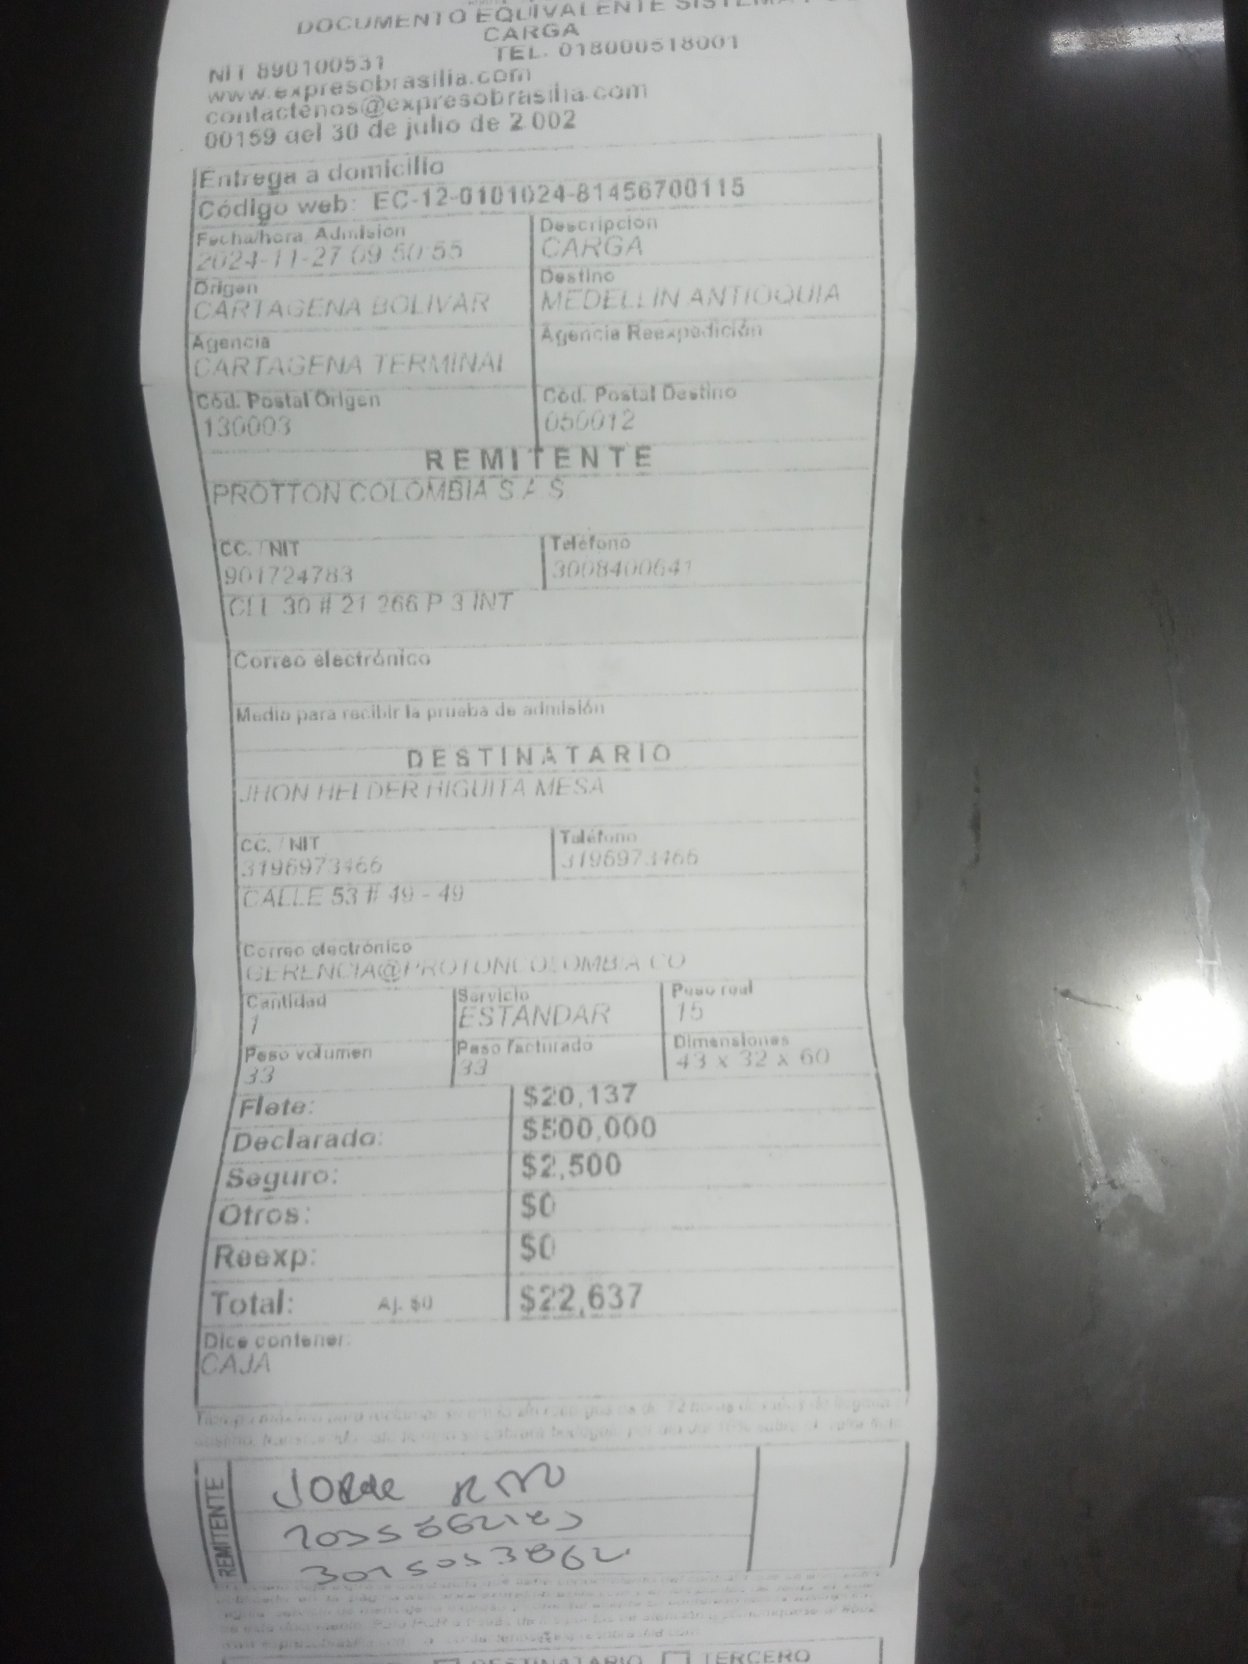 DOCUMENTO EQUIVALENTE
CARGA
NIT 890100531 TEL. 018000518001
www.expresobrasilia.com
contactenos@expresobrasilia.com
00159 del 30 de julio de 2 002
Entrega a domicilio
Código web: EC-12-0101024-81456700115
Fecha/hora Admisión Descripcion
2024-11-27 09:50:55 CARGA
Origen Destino
CARTAGENA BOLIVAR MEDELLIN ANTIOQUIA
Agencia Agencia Reexpedición
CARTAGENA TERMINAL
Cód. Postal Origen Cód. Postal Destino
130003 050012
REMITENTE
PROTTON COLOMBIA S A S
CC. / NIT Teléfono
901724783 3008400641
CLL 30 # 21 266 P 3 INT
Correo electrónico
Medio para recibir la prueba de admisión
DESTINATARIO
JHON HELDER HIGUITA MESA
CC. / NIT Teléfono
3196973466 3196973466
CALLE 53 # 49 - 49
Correo electrónico
GERENCIA@PROTONCOLOMBIA.CO
Cantidad Servicio Peso real
1 ESTANDAR 15
Peso volumen Peso facturado Dimensiones
33 33 43 x 32 x 60
Flete: $20,137
Declarado: $500,000
Seguro: $2,500
Otros: $0
Reexp: $0
Total: Aj. $0 $22,637
Dice contener:
CAJA
REMITENTE
Jorge
3015053862
DESTINATARIO TERCERO